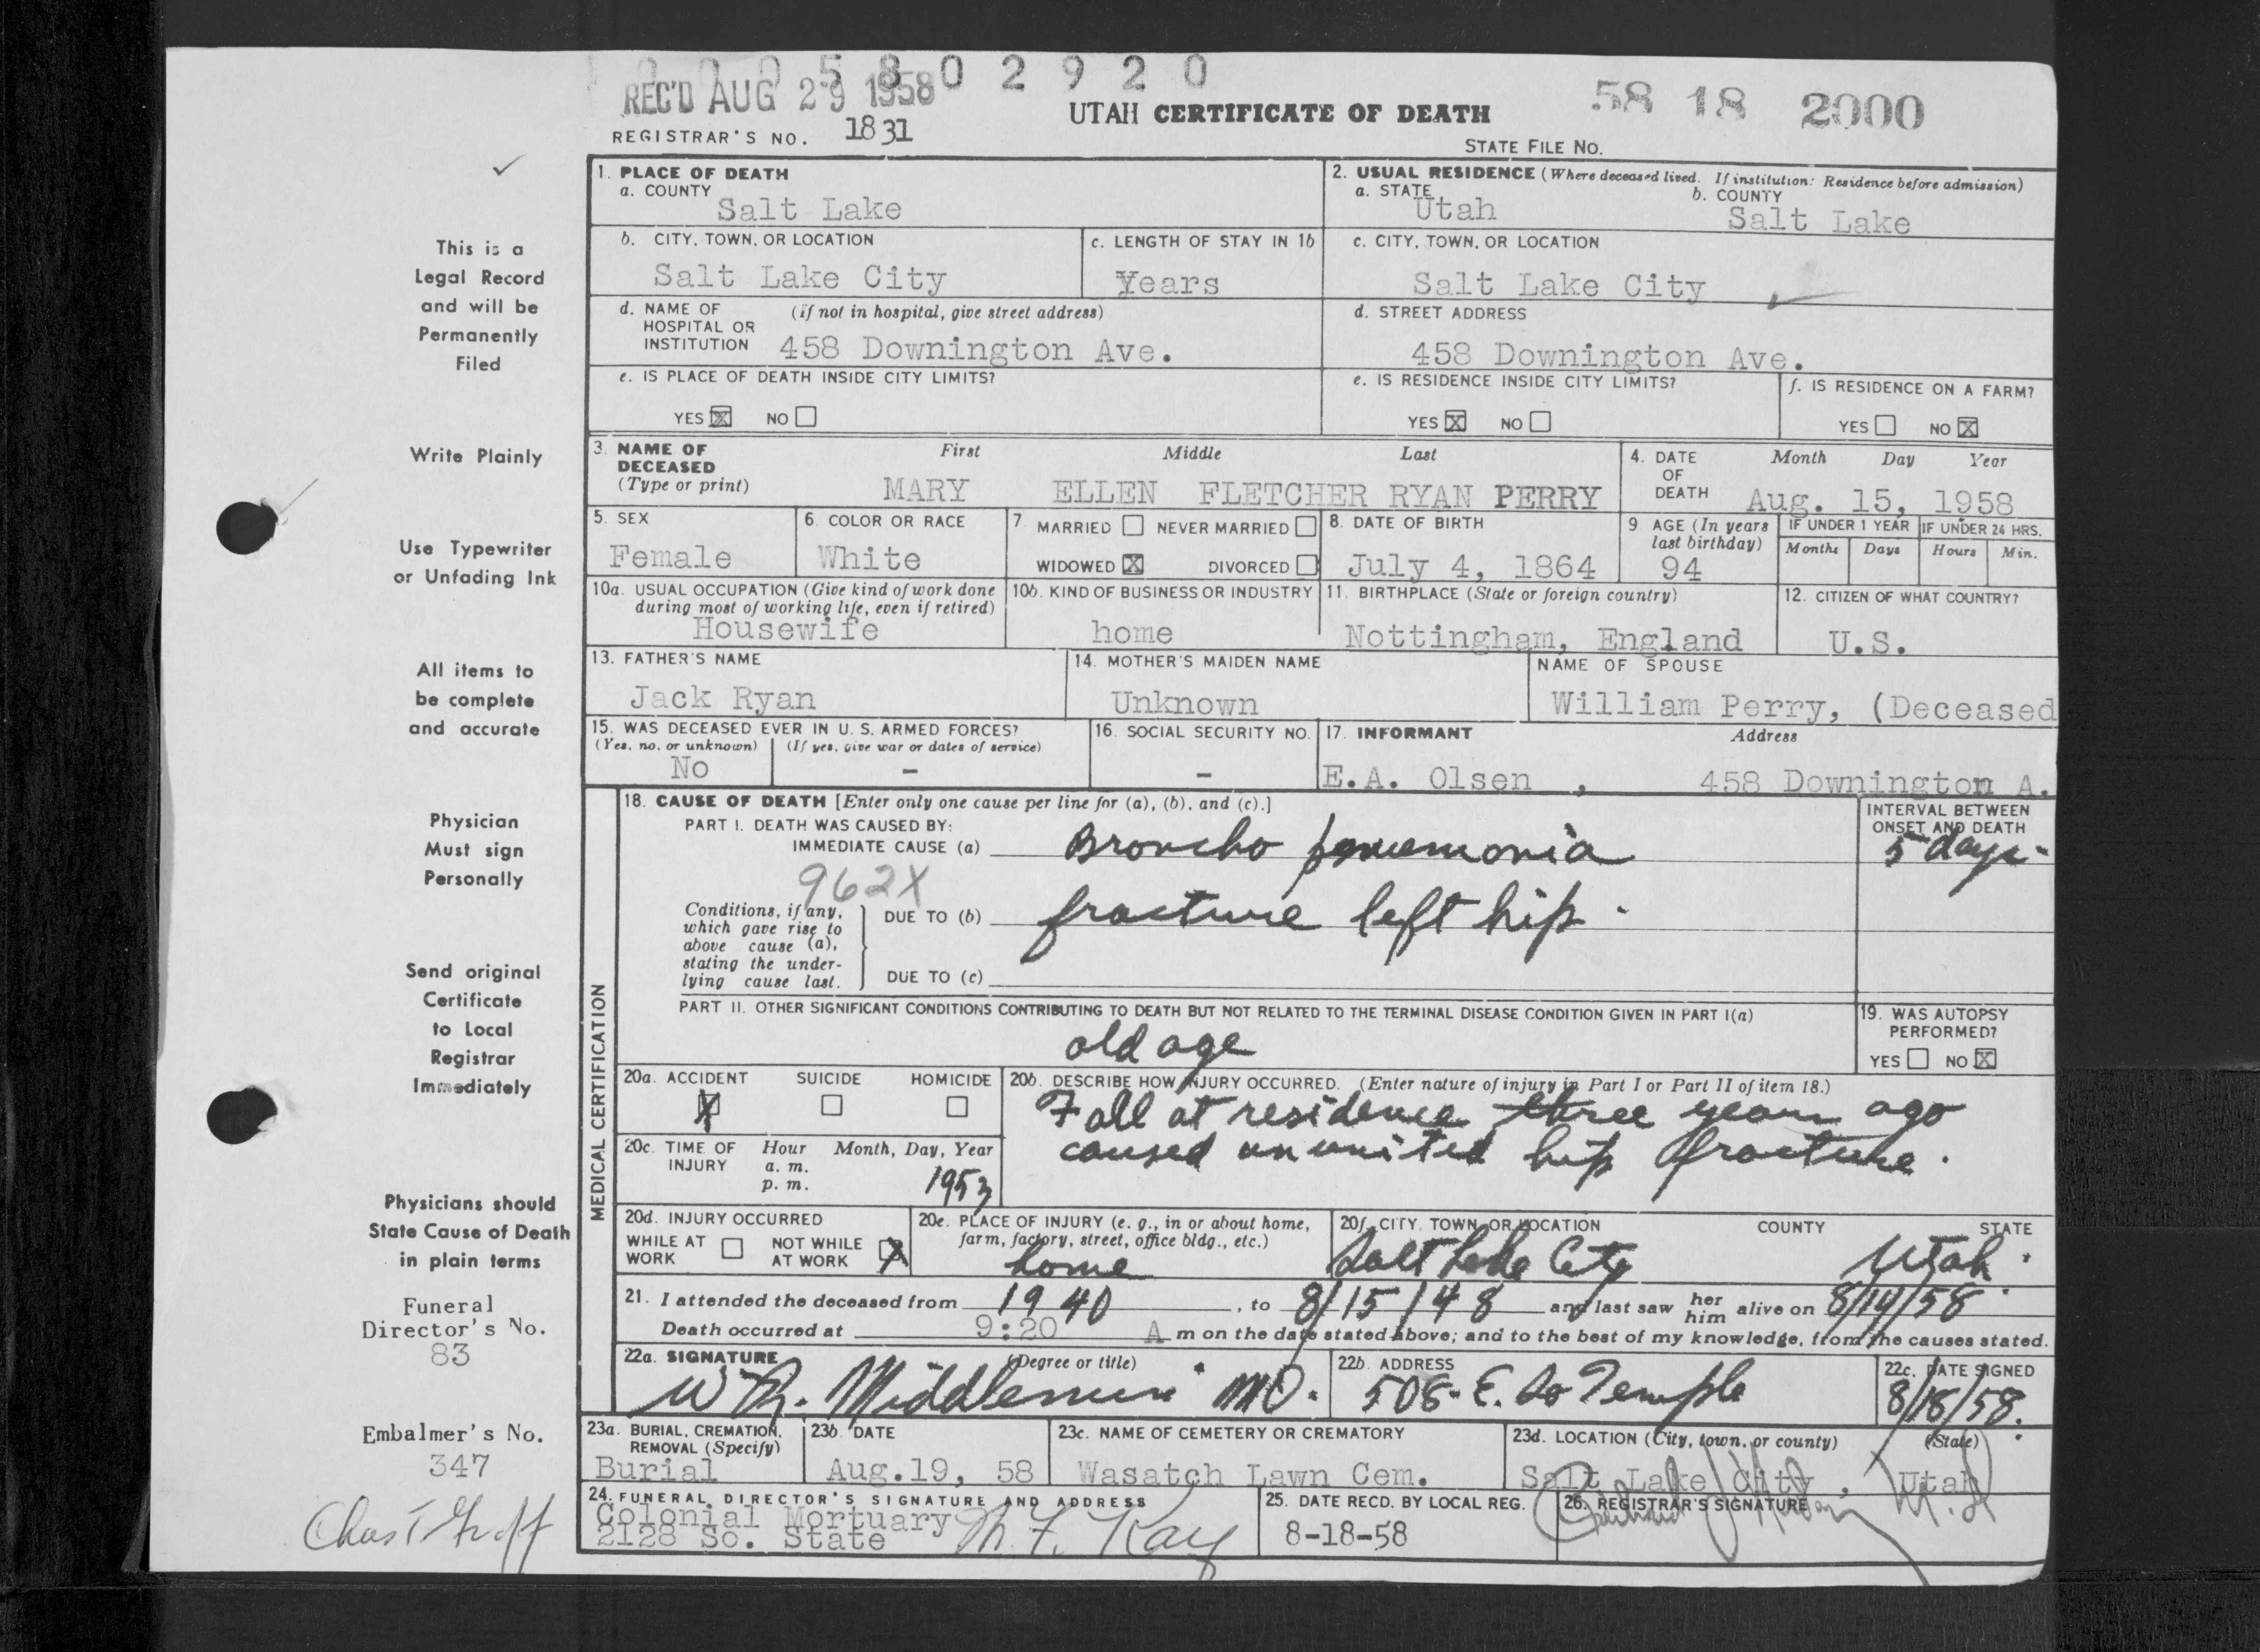 0 0 0 5 8 0 2 9 2 0
REC'D AUG 29 1958
58 18 2000
UTAH CERTIFICATE OF DEATH
REGISTRAR'S NO. 1831
STATE FILE NO.
This is a
Legal Record
and will be
Permanently
Filed
Write Plainly
Use Typewriter
or Unfading Ink
All items to
be complete
and accurate
Physician
Must sign
Personally
Send original
Certificate
to Local
Registrar
Immediately
Physicians should
State Cause of Death
in plain terms
Funeral
Director's No.
83
Embalmer's No.
347
1. PLACE OF DEATH
a. COUNTY
Salt Lake
2. USUAL RESIDENCE (Where deceased lived. If institution: Residence before admission)
a. STATE b. COUNTY
Utah Salt Lake
b. CITY, TOWN, OR LOCATION
Salt Lake City
c. LENGTH OF STAY IN 1b
Years
c. CITY, TOWN, OR LOCATION
Salt Lake City
d. NAME OF (if not in hospital, give street address)
HOSPITAL OR
INSTITUTION 458 Downington Ave.
d. STREET ADDRESS
458 Downington Ave.
e. IS PLACE OF DEATH INSIDE CITY LIMITS?
YES X NO
e. IS RESIDENCE INSIDE CITY LIMITS?
YES X NO
f. IS RESIDENCE ON A FARM?
YES NO X
3. NAME OF First Middle Last
DECEASED
(Type or print) MARY ELLEN FLETCHER RYAN PERRY
4. DATE Month Day Year
OF
DEATH Aug. 15, 1958
5. SEX
Female
6. COLOR OR RACE
White
7. MARRIED NEVER MARRIED
WIDOWED X DIVORCED
8. DATE OF BIRTH
July 4, 1864
9 AGE (In years
last birthday)
94
IF UNDER 1 YEAR IF UNDER 24 HRS.
Months Days Hours Min.
10a. USUAL OCCUPATION (Give kind of work done
during most of working life, even if retired)
Housewife
10b. KIND OF BUSINESS OR INDUSTRY
home
11. BIRTHPLACE (State or foreign country)
Nottingham, England
12. CITIZEN OF WHAT COUNTRY?
U.S.
13. FATHER'S NAME
Jack Ryan
14. MOTHER'S MAIDEN NAME
Unknown
NAME OF SPOUSE
William Perry, (Deceased
15. WAS DECEASED EVER IN U. S. ARMED FORCES?
(Yes, no, or unknown) (If yes, give war or dates of service)
No -
16. SOCIAL SECURITY NO.
-
17. INFORMANT Address
E.A. Olsen , 458 Downington A.
MEDICAL CERTIFICATION
18. CAUSE OF DEATH [Enter only one cause per line for (a), (b), and (c).]
PART I. DEATH WAS CAUSED BY:
IMMEDIATE CAUSE (a) Broncho pneumonia
INTERVAL BETWEEN
ONSET AND DEATH
5 days
962X
Conditions, if any,
which gave rise to
above cause (a),
stating the under-
lying cause last.
DUE TO (b) fracture left hip.
DUE TO (c)
PART II. OTHER SIGNIFICANT CONDITIONS CONTRIBUTING TO DEATH BUT NOT RELATED TO THE TERMINAL DISEASE CONDITION GIVEN IN PART I(a)
old age
19. WAS AUTOPSY
PERFORMED?
YES NO X
20a. ACCIDENT SUICIDE HOMICIDE
X
20b. DESCRIBE HOW INJURY OCCURRED. (Enter nature of injury in Part I or Part II of item 18.)
Fall at residence three years ago
caused ununited hip fracture.
20c. TIME OF Hour Month, Day, Year
INJURY a. m.
p. m. 1953
20d. INJURY OCCURRED
WHILE AT WORK NOT WHILE AT WORK X
20e. PLACE OF INJURY (e. g., in or about home,
farm, factory, street, office bldg., etc.)
home
20f. CITY, TOWN, OR LOCATION COUNTY STATE
Salt Lake City Utah
21. I attended the deceased from 1940, to 8/15/48 and last saw her him alive on 8/14/58
Death occurred at 9:20 A m on the date stated above; and to the best of my knowledge, from the causes stated.
22a. SIGNATURE (Degree or title)
MD.
22b. ADDRESS
508 E. So Temple
22c. DATE SIGNED
8/18/58.
23a. BURIAL, CREMATION,
REMOVAL (Specify)
Burial
23b. DATE
Aug.19, 58
23c. NAME OF CEMETERY OR CREMATORY
Wasatch Lawn Cem.
23d. LOCATION (City, town, or county) (State)
Salt Lake City, Utah
24. FUNERAL DIRECTOR'S SIGNATURE AND ADDRESS
Colonial Mortuary
2128 So. State
25. DATE RECD. BY LOCAL REG.
8-18-58
26. REGISTRAR'S SIGNATURE